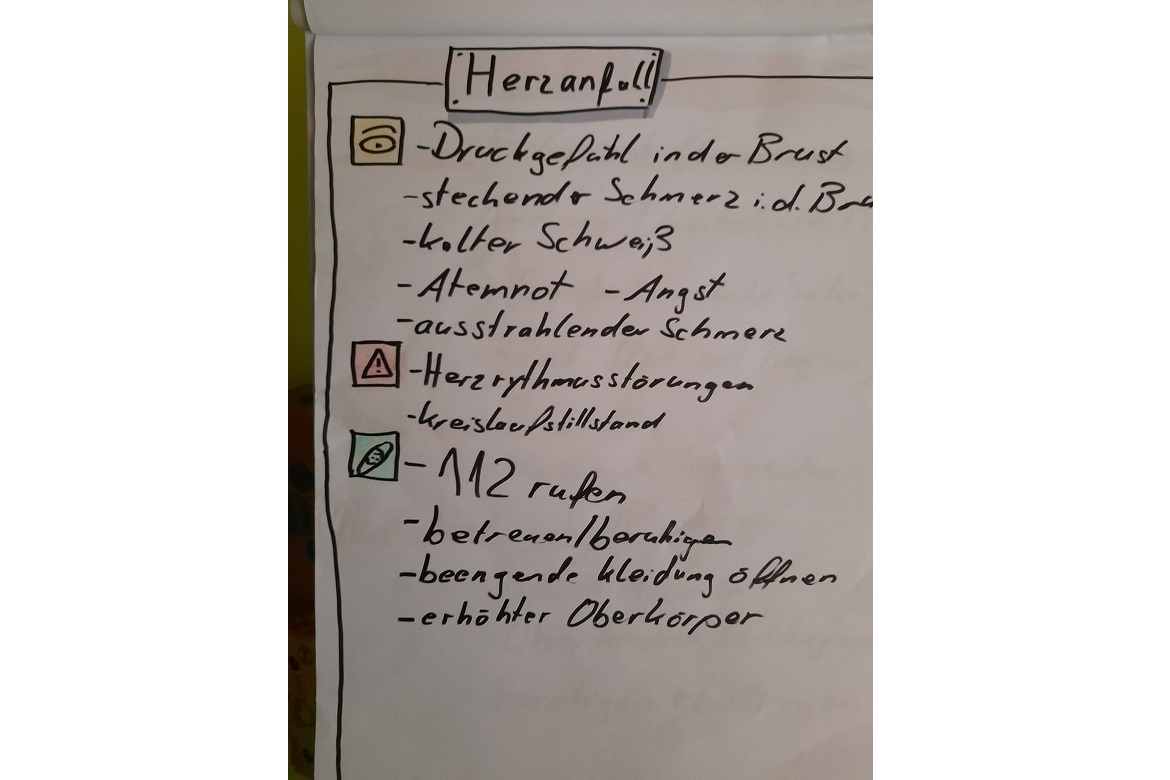 Herzanfall
- Druckgefühl in der Brust
- stechender Schmerz i.d. Bru
- kalter Schweiß
- Atemnot - Angst
- ausstrahlender Schmerz
- Herzrythmusstörungen
- Kreislaufstillstand
- 112 rufen
- betreuen/beruhigen
- beengende Kleidung öffnen
- erhöhter Oberkörper